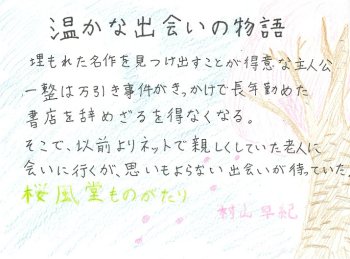 温かな出会いの物語
埋もれた名作を見つけ出すことが得意な主人公
一整は万引き事件がきっかけで長年勤めた
書店を辞めざるを得なくなる。
そこで、以前よりネットで親しくしていた老人に
会いに行くが、思いもよらない出会いが待っていた。
桜風堂ものがたり
村山早紀